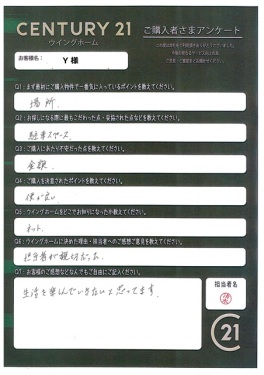 CENTURY 21
ウイングホーム
ご購入者さまアンケート
お客様名：
Y 様
Q1：まず最初にご購入物件で一番気に入っているポイントを教えてください。
場所
Q2：お探しになる際に最もこだわった点・妥協された点などを教えてください。
駐車スペース
Q3：ご購入にあたり不安だった点を教えてください。
金額
Q4：ご購入を決意されたポイントを教えてください。
Q5：ウイングホームをどこでお知りになったか教えてください。
ネット
Q6：ウイングホームに決めた理由・担当者へのご感想ご意見を教えてください。
担当者が親切だった
Q7：お客様のご感想などなんでもご自由にご記入ください。
生活を楽しんでいきたいと思ってます。
担当者名
C21